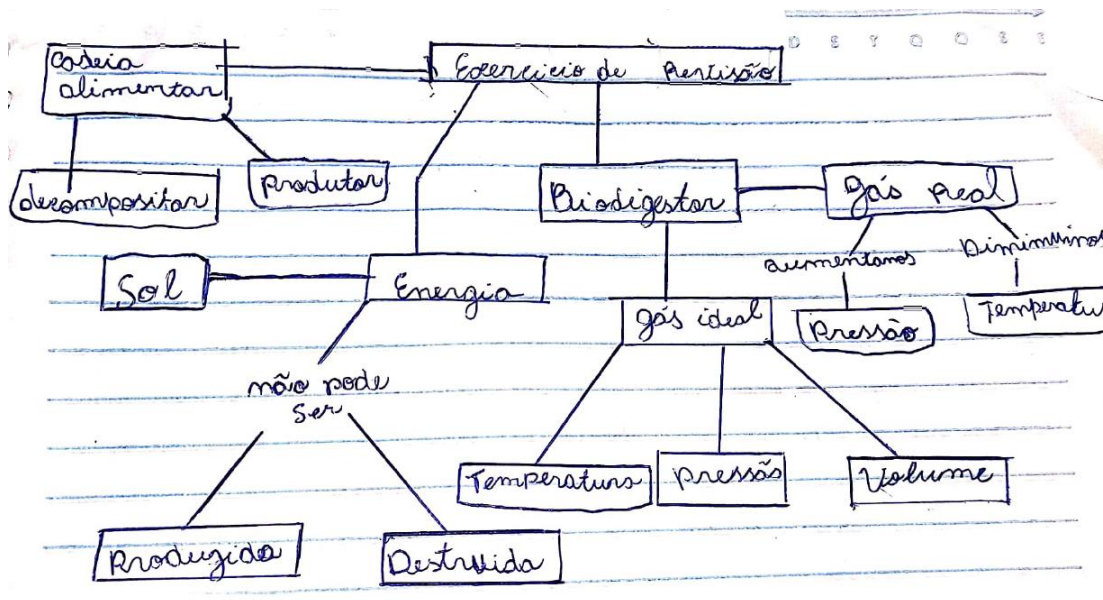 Cadeia
alimentar
Exercicio de Revisão
decompositor
Produtor
Biodigestor
Gás Real
aumentamos
Diminuimos
Sol
Energia
gás ideal
Pressão
Temperatu
não pode
ser
Temperatura
Pressão
Volume
Produzida
Destruida